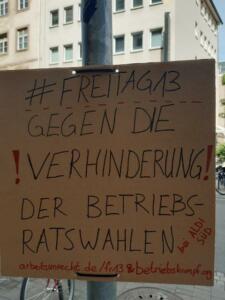 #FREITAG13
GEGEN DIE
!VERHINDERUNG!
DER BETRIEBS-
RATSWAHLEN bei ALDI SÜD
arbeitsunrecht.de/fr13 & betriebskampf.org